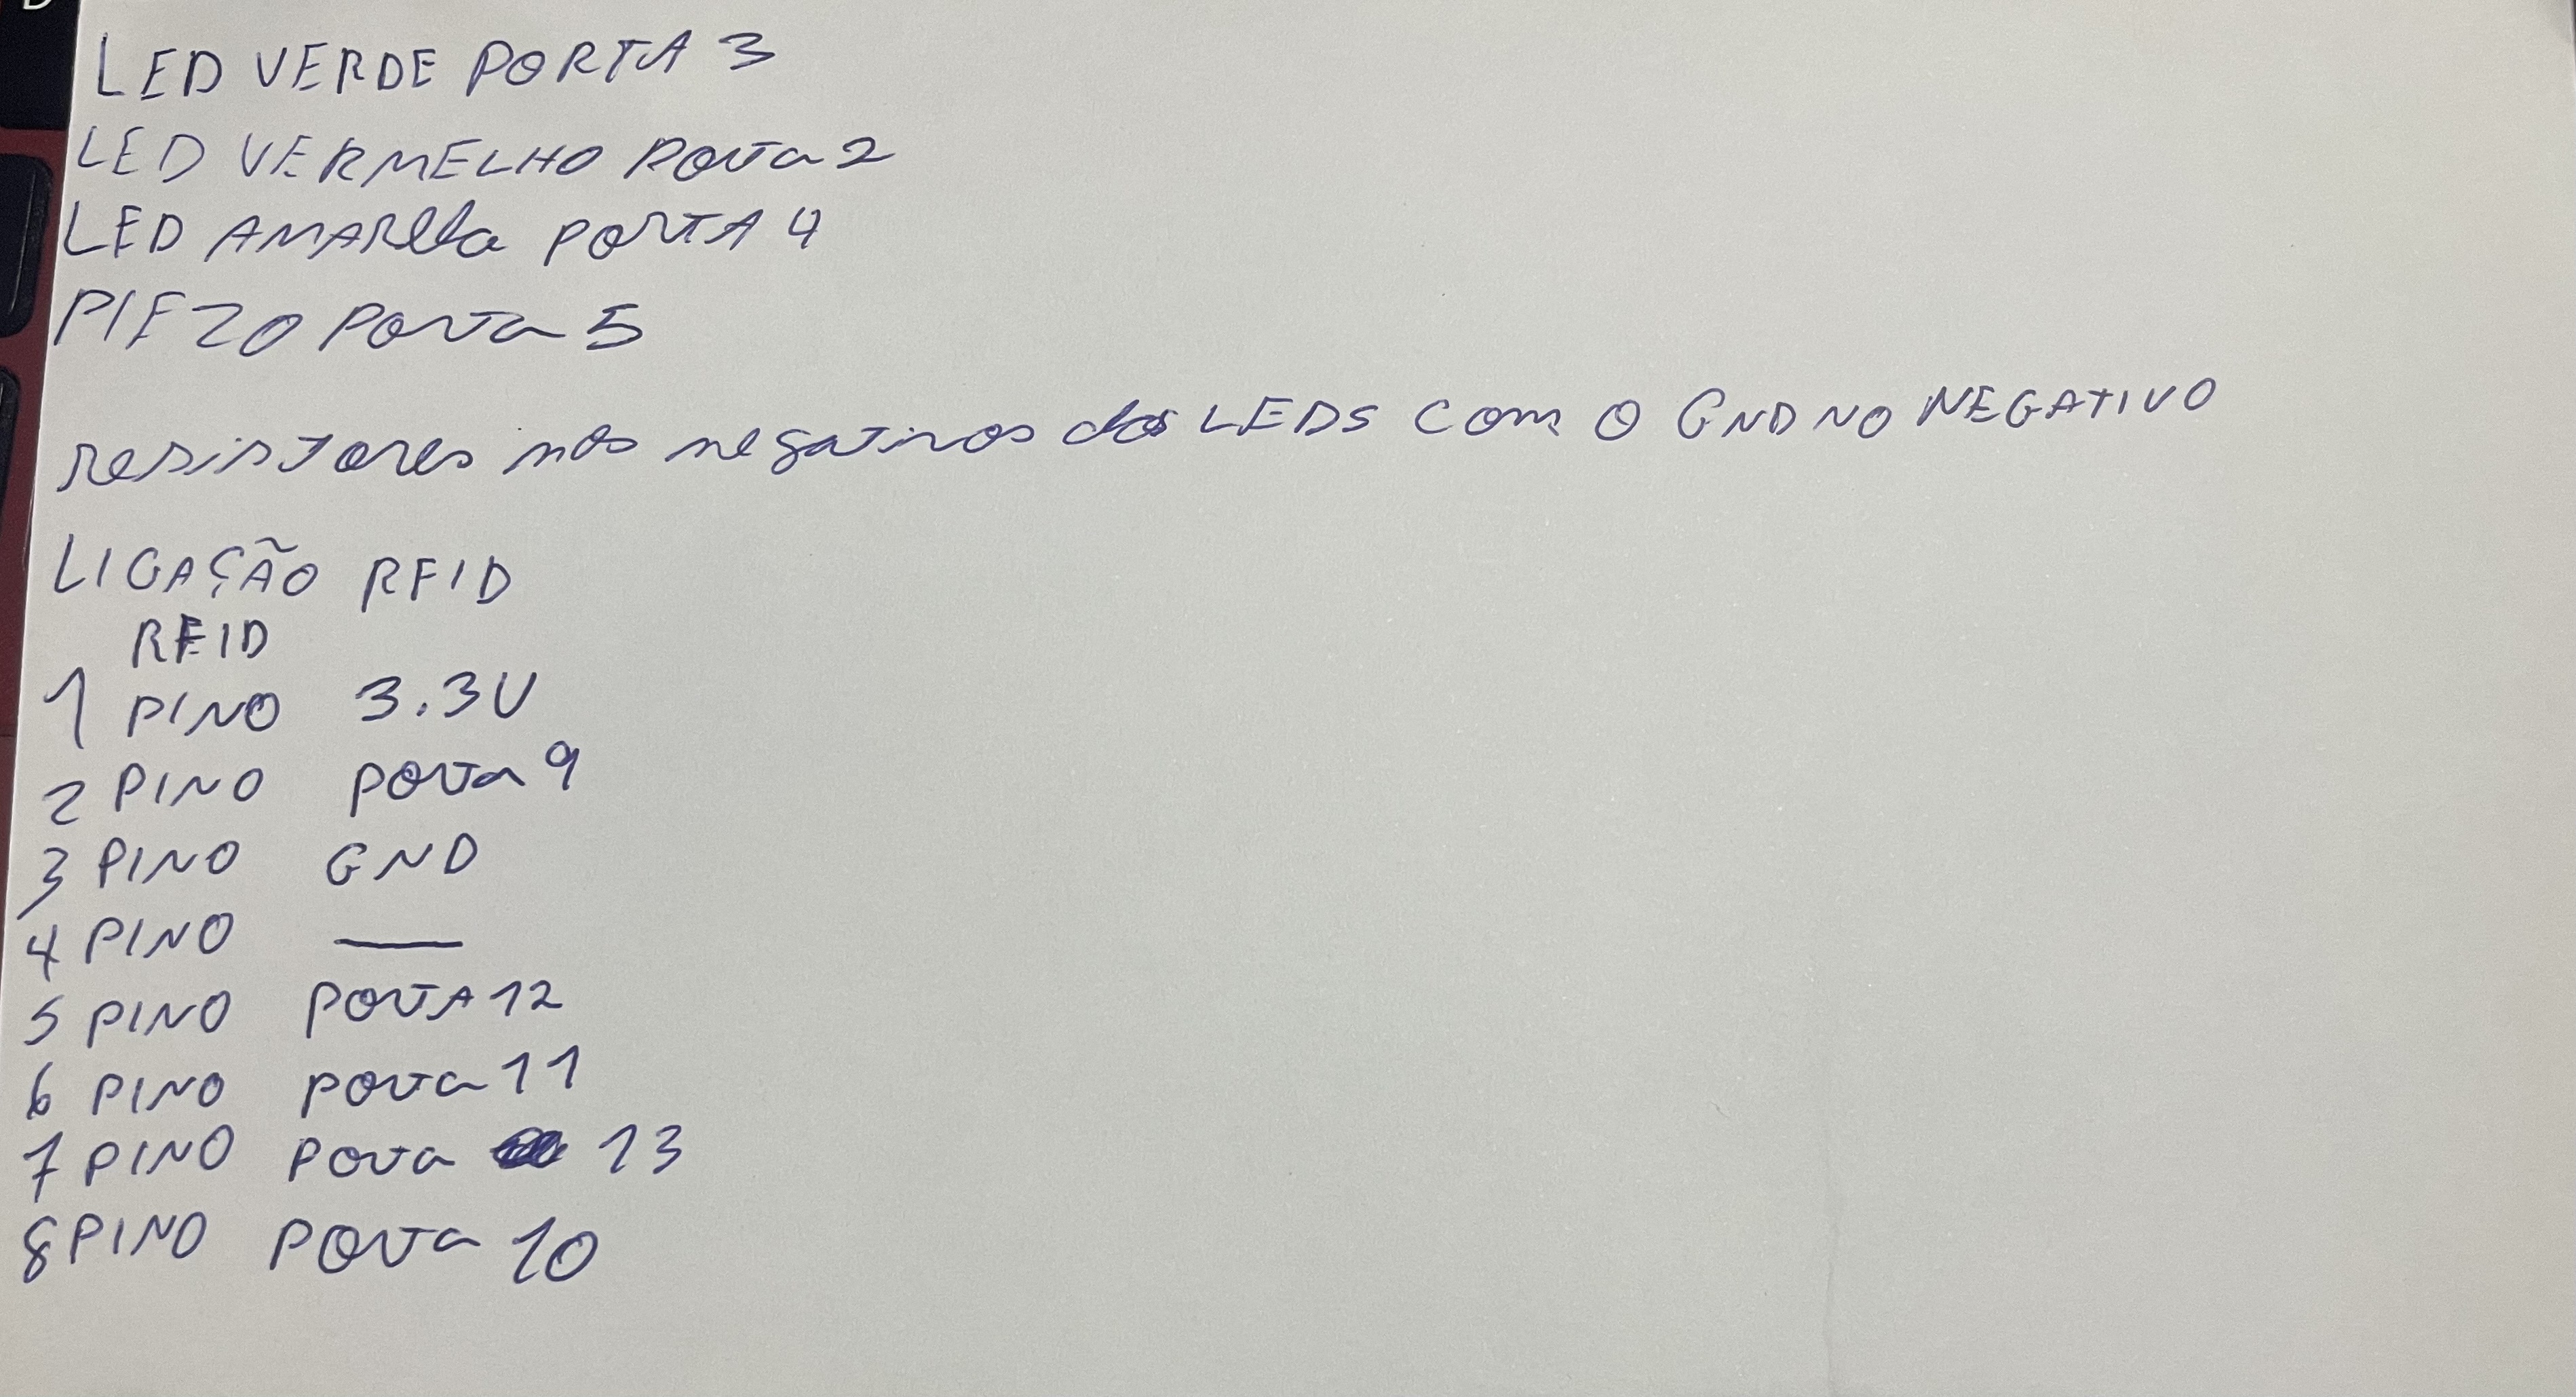 LED VERDE PORTA 3
LED VERMELHO PORTA 2
LED AMARELO PORTA 4
PIEZO PORTA 5
resistores nos negativos dos LEDS com o GND NO NEGATIVO
LIGAÇÃO RFID
RFID
1 PINO 3.3V
2 PINO PORTA 9
3 PINO GND
4 PINO —
5 PINO PORTA 12
6 PINO PORTA 11
7 PINO PORTA 13
8 PINO PORTA 10